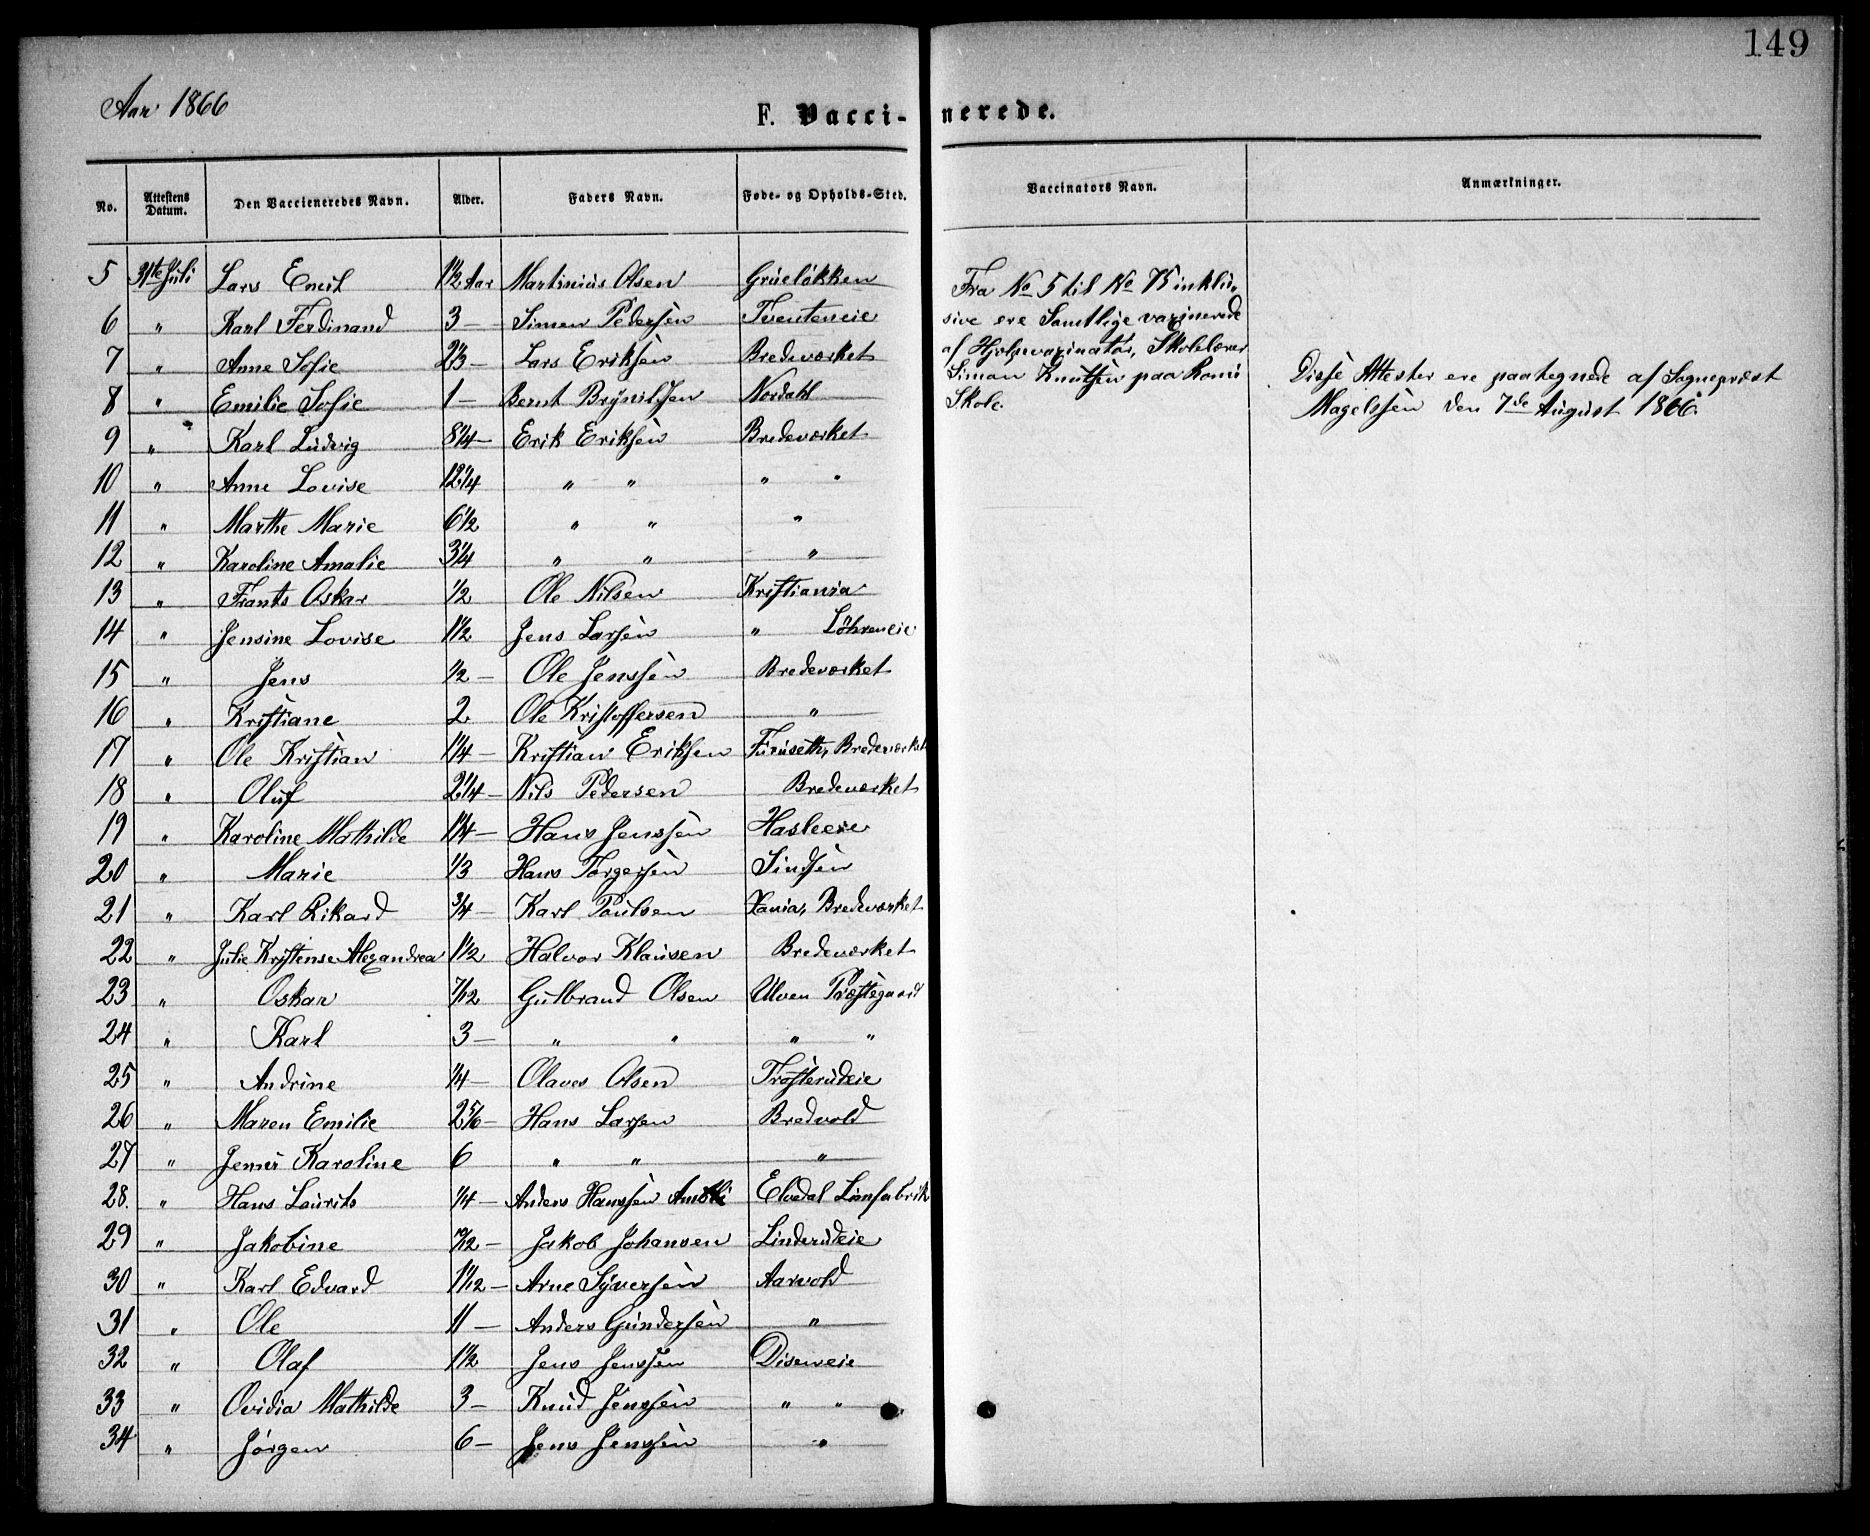 149
Aar 1866
F. Vacci- nerede.
No. Attestens Datum. Den Vaccieneredes Navn. Alder. Faders Navn. Føde- og Opholds-Sted. Vaccinators Navn. Anmærkninger.
5 31te Juli Lars Emil 1 1/2 Aar Martinius Olsen Grueløkken
6 " Karl Ferdinand 3 — Simen Pedersen Tventeneie
7 " Anne Sofie 2 1/3 — Lars Eriksen Bredeværket
8 " Emilie Sofie 1 — Bernt Brynilsen Nordahl
9 " Karl Ludvig 8 1/4 — Erik Eriksen Bredeværket
10 " Anne Lovise 12 1/4 " " " "
11 " Marthe Marie 6 1/2 " " "
12 " Karoline Amalie 3 1/4 " " "
13 " Frants Oskar 1/2 Ole Nilsen Kristiania
14 " Jensine Lovise 1 1/2 Jens Larsen " Löhreneie
15 " Jens 1/2 — Ole Jenssen Bredeværket
16 " Kristiane 2 Ole Kristoffersen "
17 " Ole Kristian 1 1/4 — Kristian Eriksen Furuseth, Bredeværket
18 " Oluf 2 1/4 — Nils Pedersen Bredeværket
19 " Karoline Mathilde 1 1/4 — Hans Jenssen Hasleeie
20 " Marie 1/3 Hans Torgersen Sinsen
21 " Karl Rikard 3/4 — Karl Poulsen Xania, Bredeværket
22 " Julie Kristense Alexandrea 1 1/2 Halvor Klausen Bredeværket
23 " Oskar 7/12 Gulbrand Olsen Ulven Præstegaard
24 " Karl 3 — " " " "
25 " Andrine 1/4 — Olaves Olsen Trosterudeie
26 " Maren Emilie 2 5/6 — Hans Larsen Bredvold
27 " Jenni Karoline 6 " " "
28. " Hans Laurits 1/4 — Anders Hanssen Elvedal Limfabrik
29 " Jakobine /12 — Jakob Johansen Linderudeie
30 " Karl Edvard 1 1/12 — Arne Syversen Aarvold
31 " Ole 11 — Anders Gundersen "
32 " Olaf 1 1/2 Jens Jenssen Diseneie
33 " Ovidia Mathilde 3 — Knud Jenssen " "
34 " Jørgen 6 — Jens Jenssen "
Fra No 5 til No 75 inklu„
sive ere Samtlige vaxinerede
af Hjelpevaxinatør, Skolelærer
Simon Knutsen paa Bani
Skole.
Disse Attester ere paategnede af Sognepræst
Magelssen den 7de August 1866.